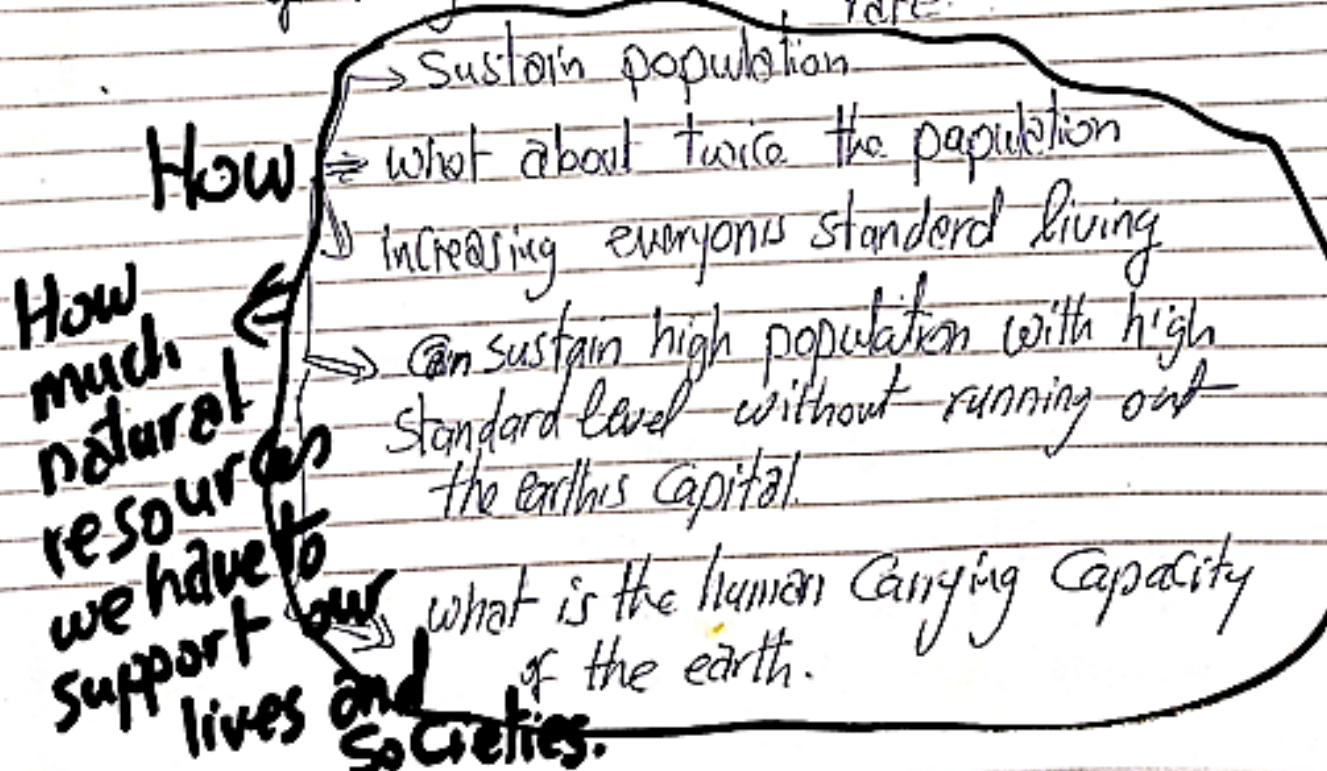 rate.
→ Sustain population
How
⇒ what about twice the papulation
increasing everyonis standerd living
Can sustain high population with high
standard level without running out
the earthis Capital.
what is the human Carrying Capacity
of the earth.
How
much
natural
resources
we have to
support our
lives and
Societies.